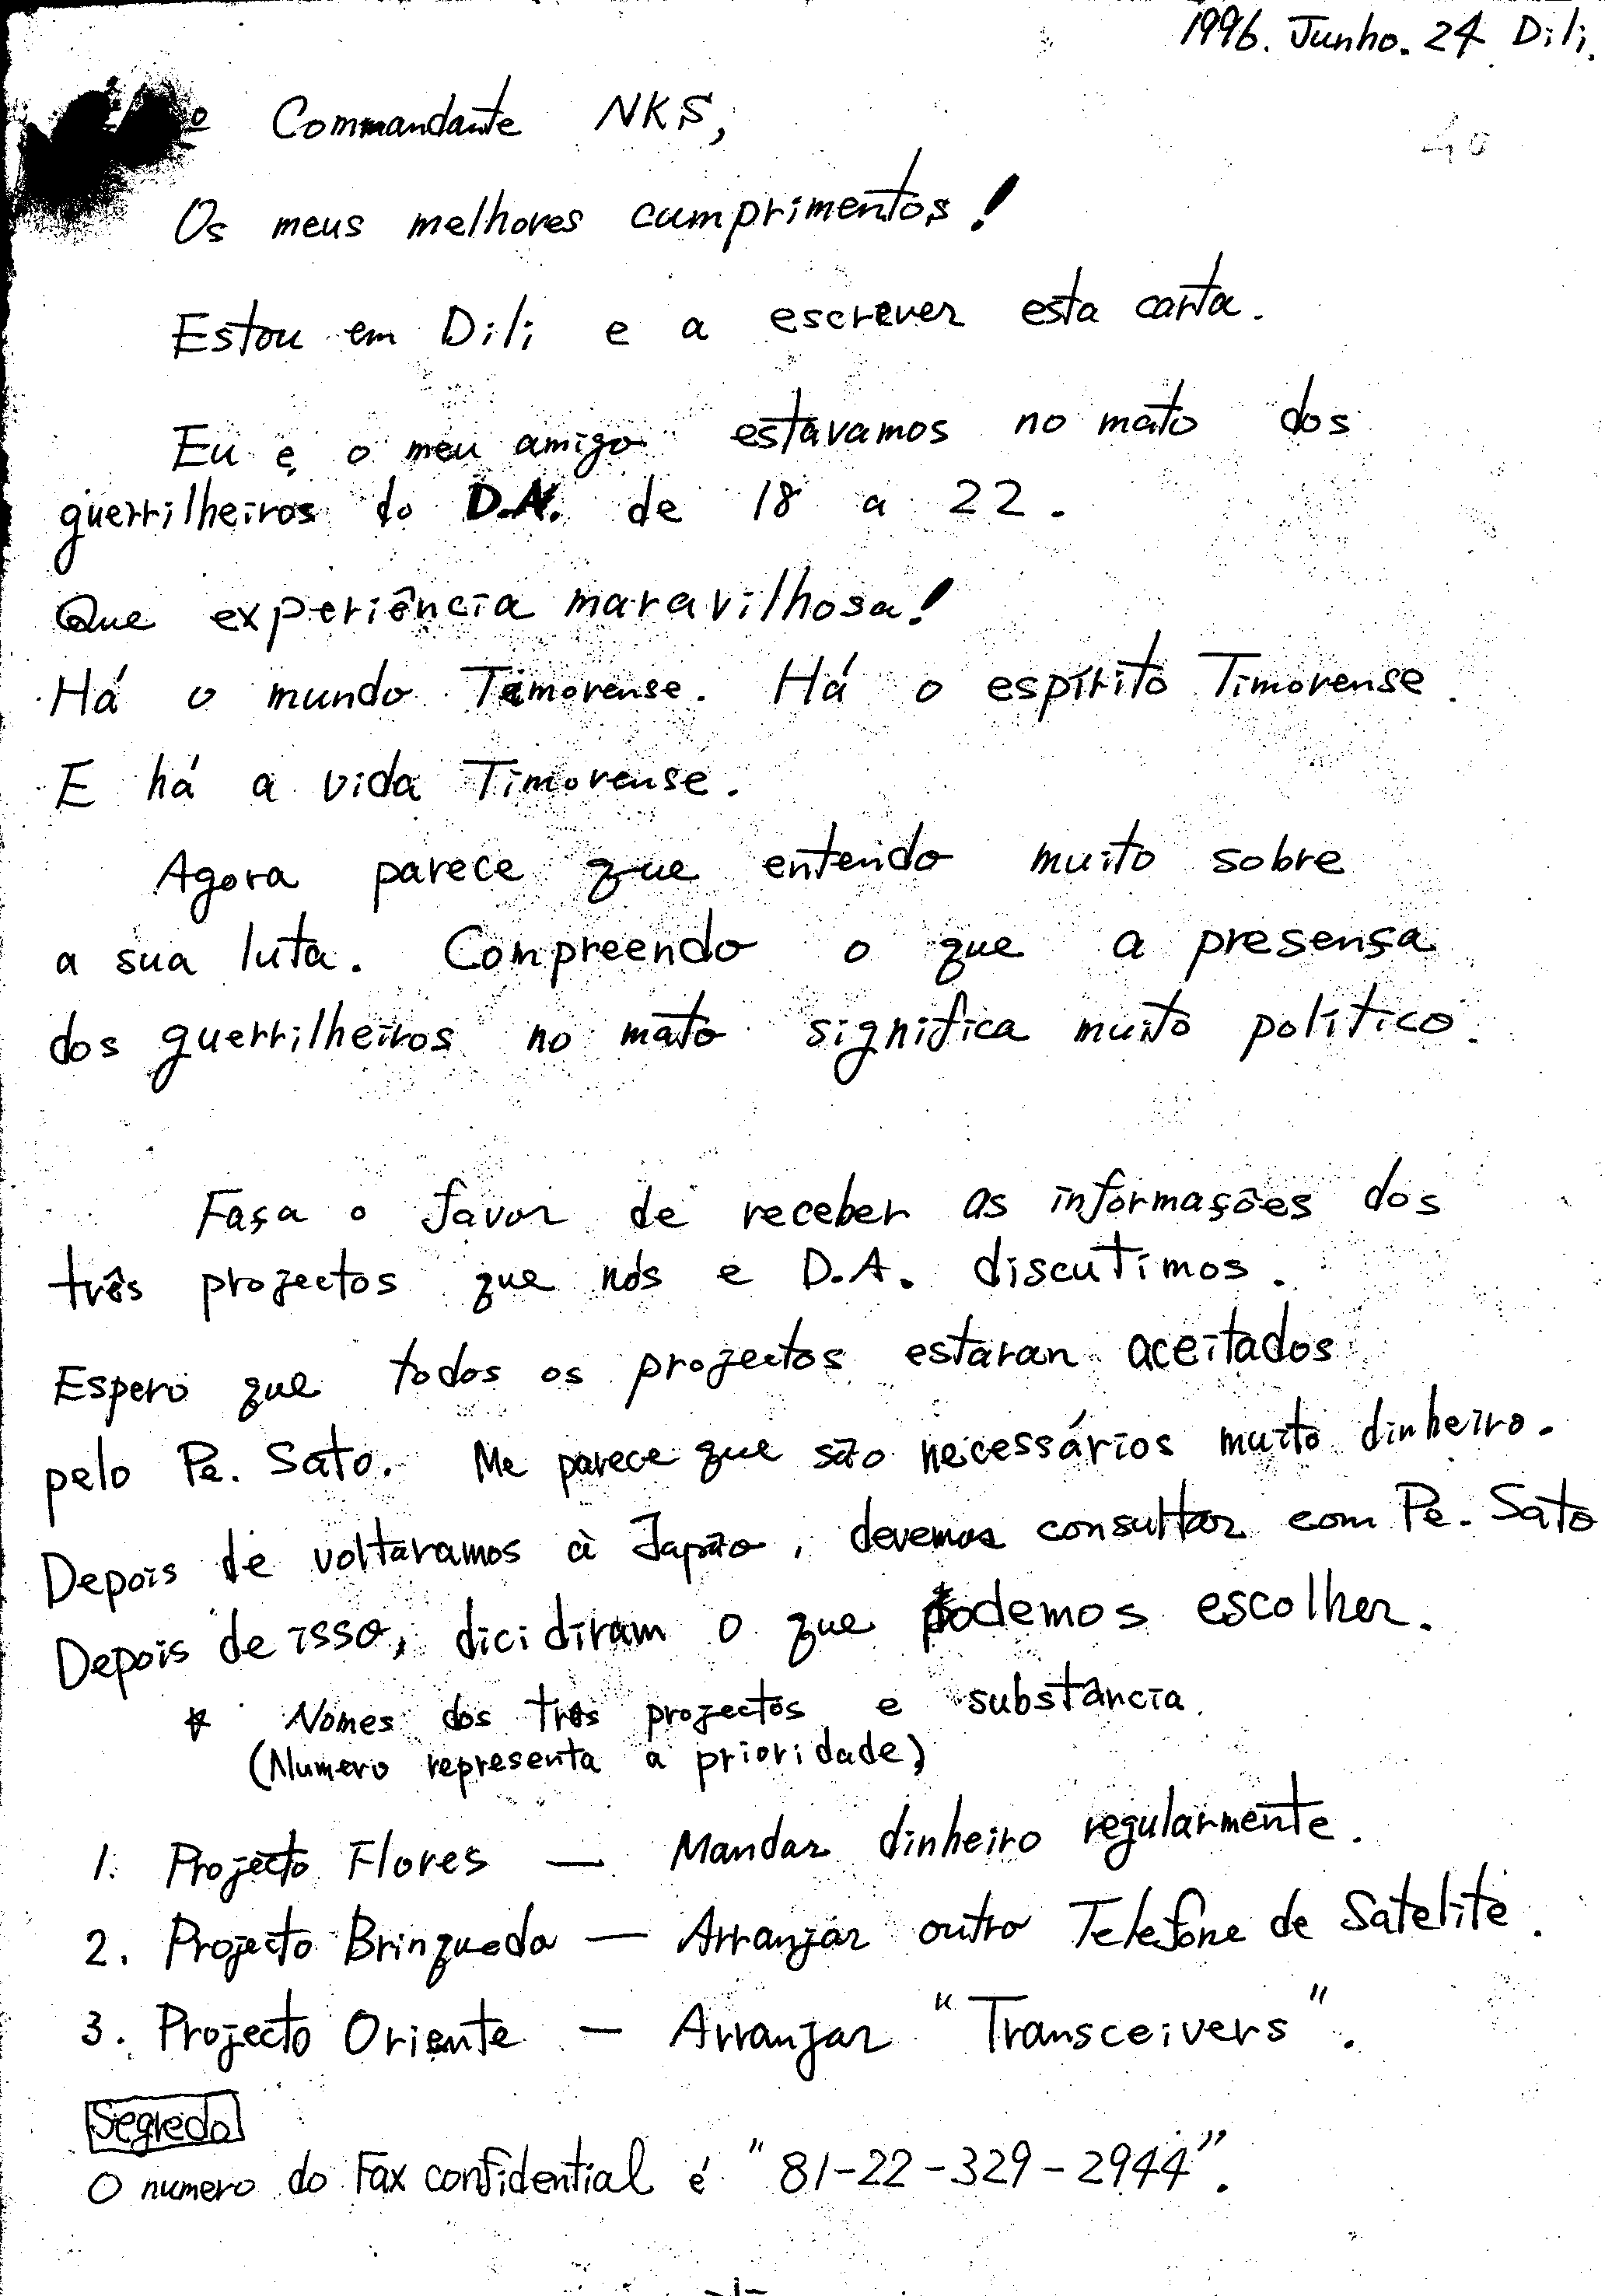 1996. Junho. 24 Dili.
40
o Commandante NKS,
Os meus melhores cumprimentos!
Estou em Dili e a escrever esta carta.
Eu e o meu amigo estavamos no mato dos
guerrilheiros do D.A. de 18 a 22.
Que experiência maravilhosa!
Há o mundo Timorense. Há o espírito Timorense.
E há a vida Timorense.
Agora parece que entendo muito sobre
a sua luta. Compreendo o que a presensa
dos guerrilheiros no mato significa muito político.
Faça o favor de receber as informações dos
três projectos que nós e D.A. discutimos.
Espero que todos os projectos estaran aceitados
pelo Pe. Sato. Me parece que são necessários muito dinheiro.
Depois de voltaramos à Japão, devemos consultar com Pe. Sato
Depois de isso, dicidiram o que podemos escolher.
* Nomes dos três projectos e substância.
(Numero representa a prioridade)
1. Projecto Flores — Mandar dinheiro regularmente.
2. Projecto Brinquedo — Arranjar outro Telefone de Satelite.
3. Projecto Oriente — Arranjar "Transceivers".
Segredo
O numero do Fax confidential é "81-22-329-2944".